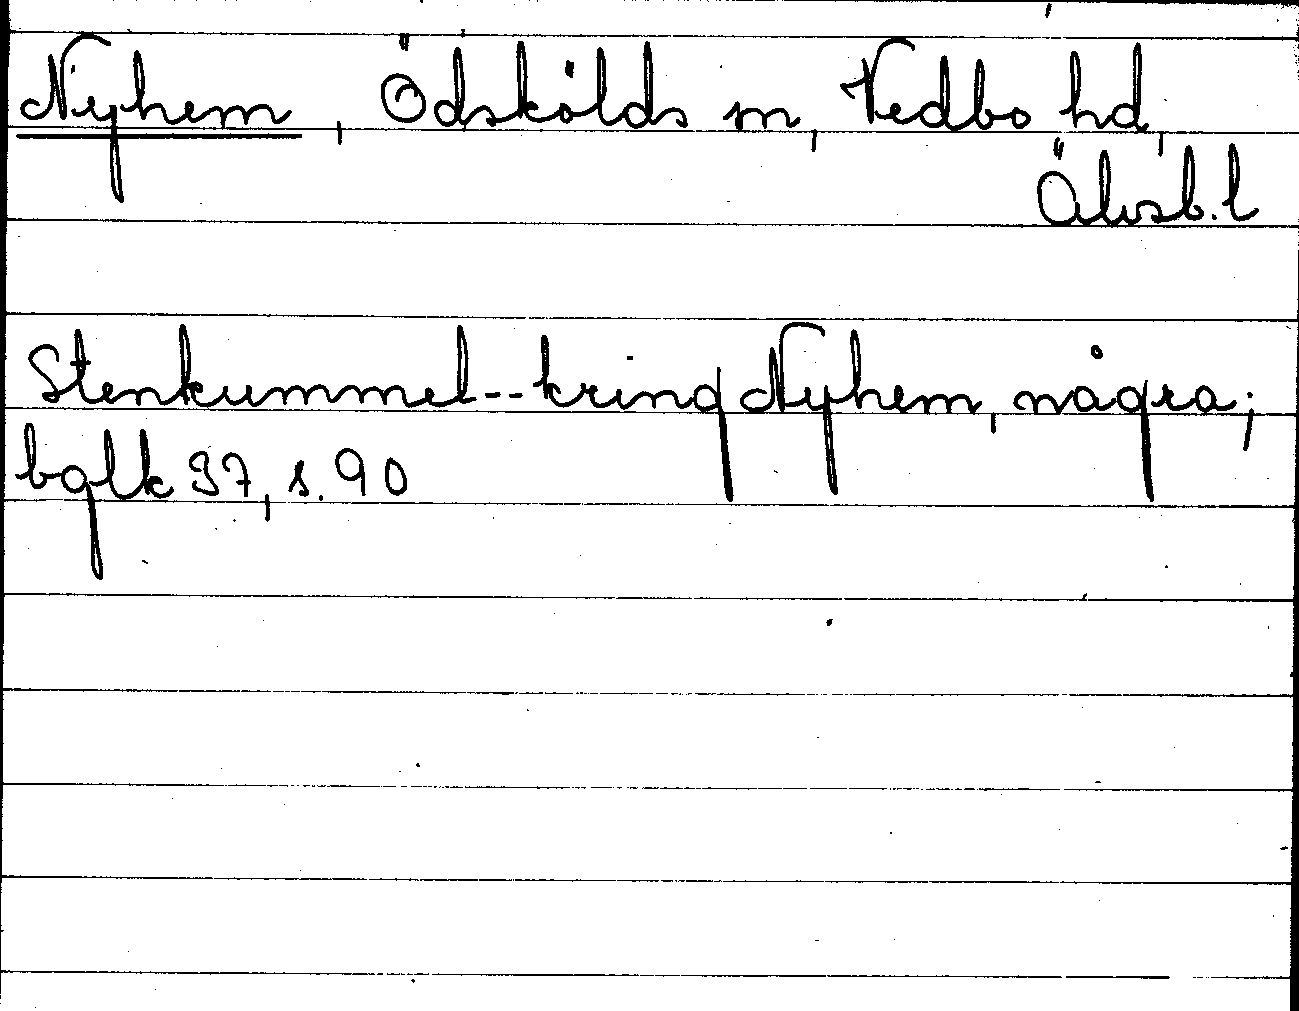 Nyhem, Ödskölds sn, Vedbo hd,
Älvsb. l
Stenkummel -- kring Nyhem, några;
bglk 37, s. 90